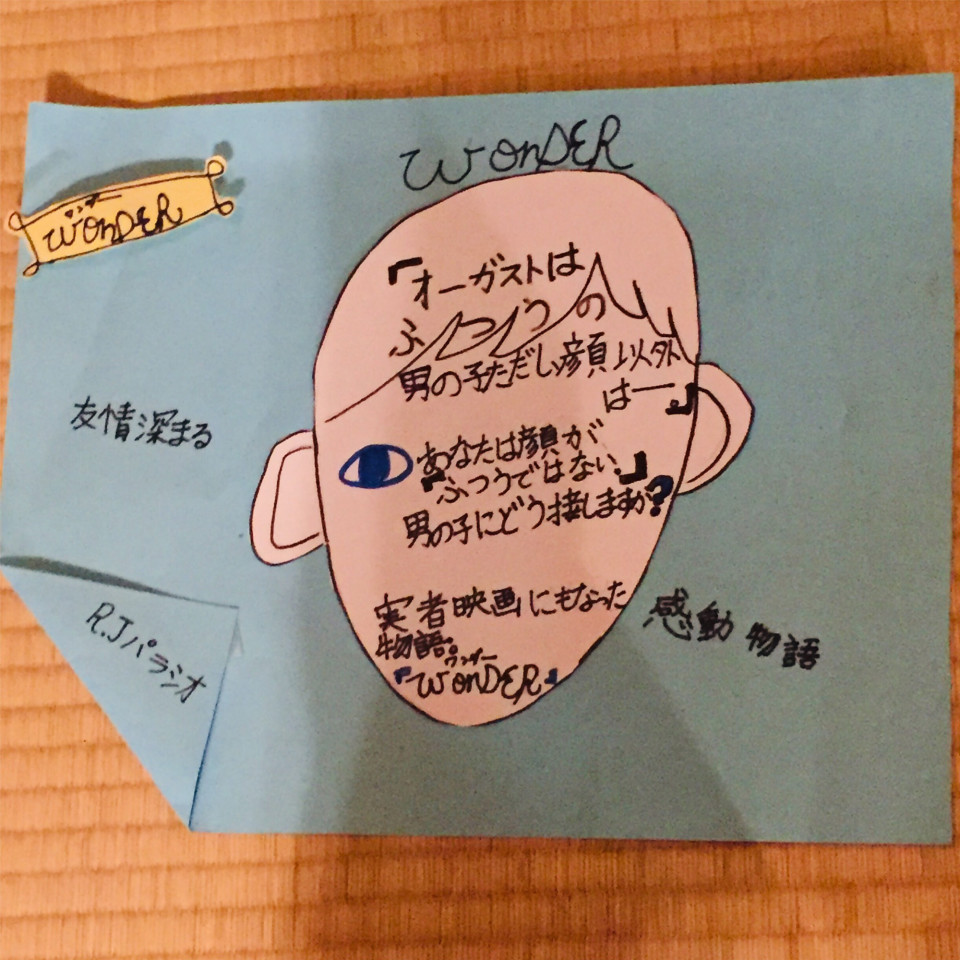 WonDER
ワンダー
WonDER
『オーガストは
ふつうの
男の子ただし顔以外
は―。』
友情深まる
あなたは顔が
『ふつうではない』
男の子にどう接しますか?
実者映画にもなった
物語。
ワンダー
『WonDER』
感動物語
R.Jパラシオ